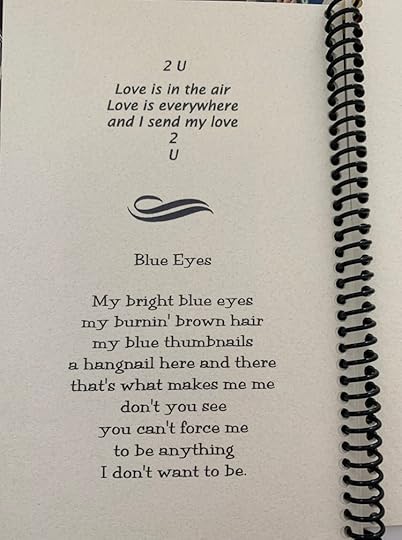 2 U
Love is in the air
Love is everywhere
and I send my love
2
U
Blue Eyes
My bright blue eyes
my burnin' brown hair
my blue thumbnails
a hangnail here and there
that's what makes me me
don't you see
you can't force me
to be anything
I don't want to be.